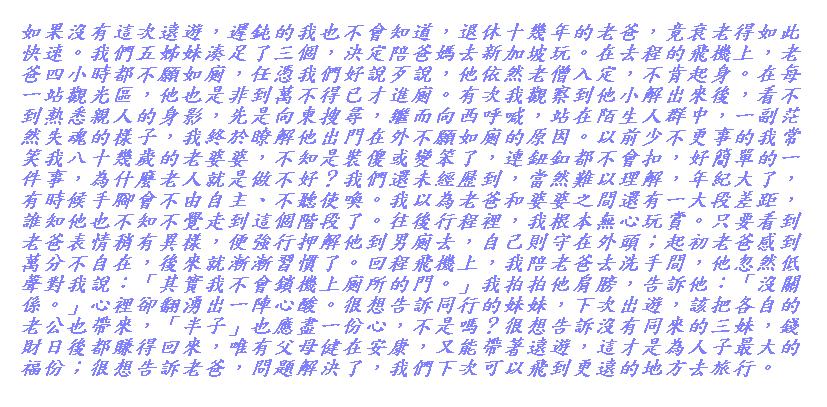 如果沒有這次遠遊，遲鈍的我也不會知道，退休十幾年的老爸，竟衰老得如此
快速。我們五姊妹湊足了三個，決定陪爸媽去新加坡玩。在去程的飛機上，老
爸四小時都不願如廁，任憑我們好說歹說，他依然老僧入定，不肯起身。在每
一站觀光區，他也是非到萬不得已才進廁。有次我觀察到他小解出來後，看不
到熟悉親人的身影，先是向東搜尋，繼而向西呼喊，站在陌生人群中，一副茫
然失魂的樣子，我終於瞭解他出門在外不願如廁的原因。以前少不更事的我常
笑我八十幾歲的老婆婆，不知是裝傻或變笨了，連鈕釦都不會扣，好簡單的一
件事，為什麼老人就是做不好？我們還未經歷到，當然難以理解，年紀大了，
有時候手腳會不由自主、不聽使喚。我以為老爸和婆婆之間還有一大段差距，
誰知他也不知不覺走到這個階段了。往後行程裡，我根本無心玩賞。只要看到
老爸表情稍有異樣，便強行押解他到男廁去，自己則守在外頭；起初老爸感到
萬分不自在，後來就漸漸習慣了。回程飛機上，我陪老爸去洗手間，他忽然低
聲對我說：「其實我不會鎖機上廁所的門。」我拍拍他肩膀，告訴他：「沒關
係。」心裡卻翻湧出一陣心酸。很想告訴同行的妹妹，下次出遊，該把各自的
老公也帶來，「半子」也應盡一份心，不是嗎？很想告訴沒有同來的三妹，錢
財日後都賺得回來，唯有父母健在安康，又能帶著遠遊，這才是為人子最大的
福份；很想告訴老爸，問題解決了，我們下次可以飛到更遠的地方去旅行。